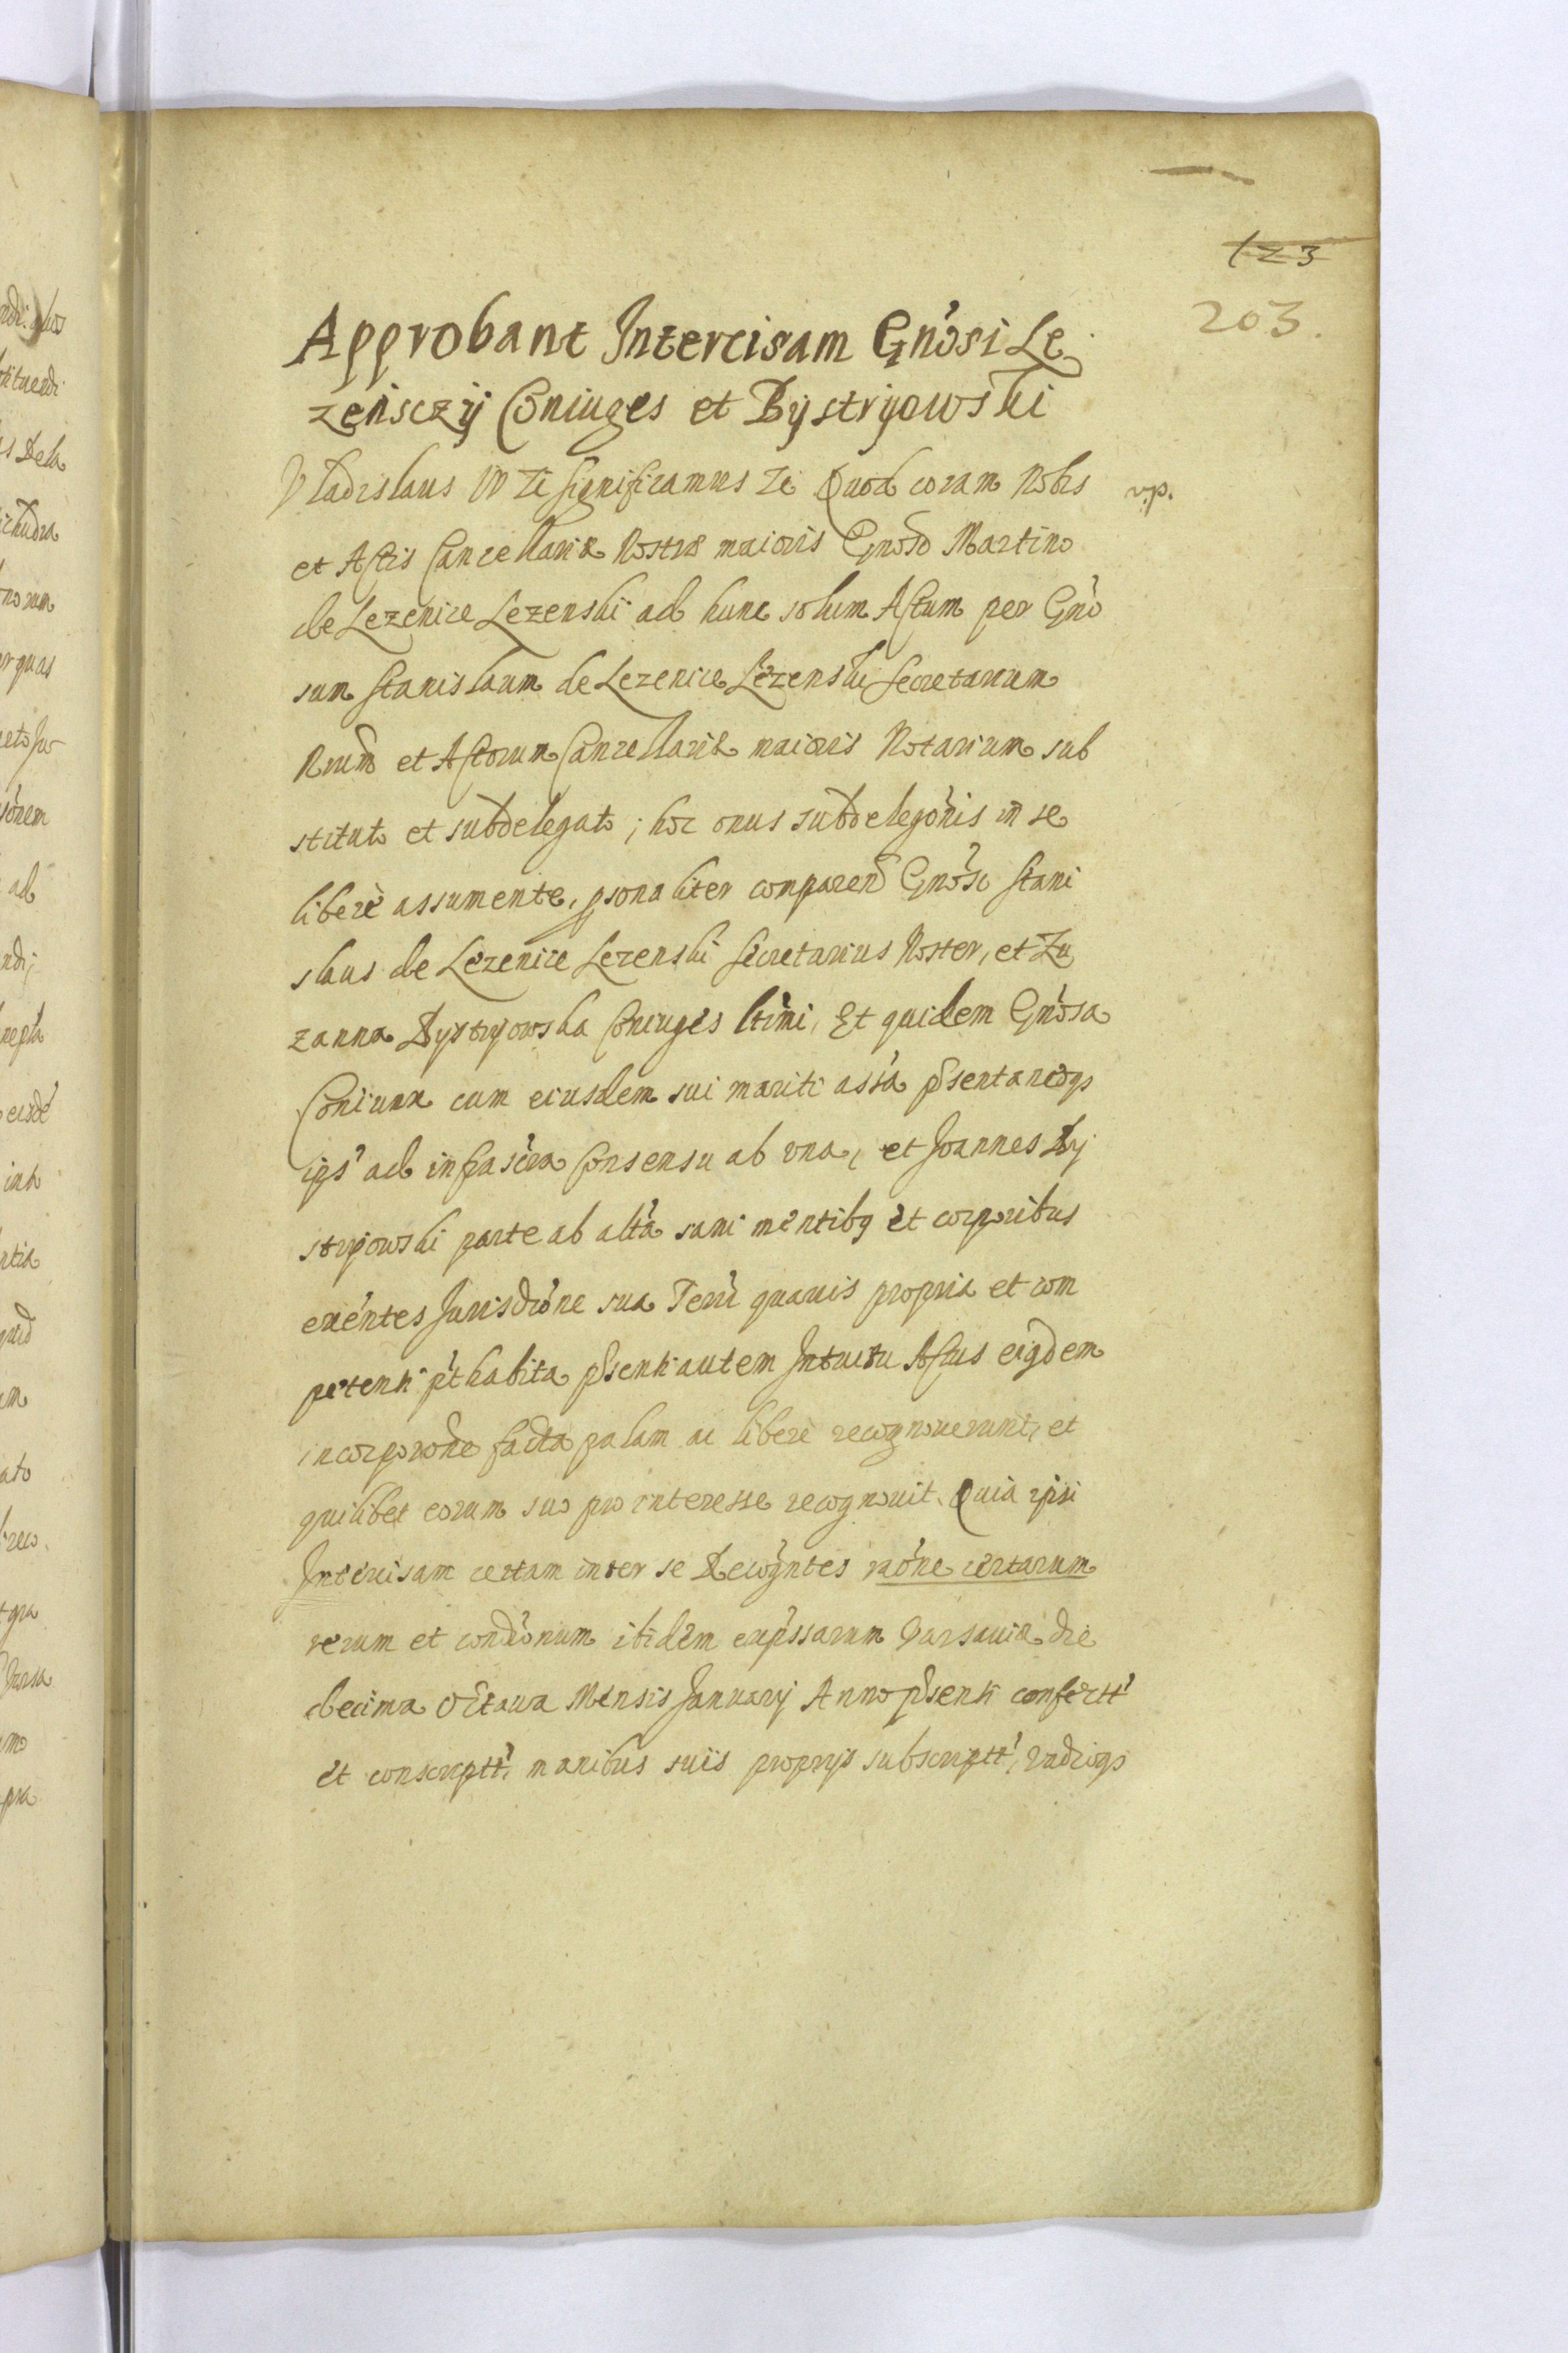 123
203.
Approbant Intercisam Gnosi Le
zensczÿ Coniuges et Bystryowski
Vladislaus IV Significamus Quod coram Nobis
v.p.
et Actis Cancellariæ Nostræ maioris Gnoso Martino
de Lezenice Lezenski ad hunc solum Actum per Gno
sum Stanislaum de Lezenice Lezenski Secretarium
Nrum et Actorum Cancellariæ maioris Notarium sub
stituto et subdelegato; hoc onus subdelegonis in se
liberè assumente, psonaliter comparen Gnosi Stani
slaus de Lezenice Lezenski Secretarius Noster, et Zu
zanna Bystryowska Coniuges ltimi, Et quidem Gnosa
Coniunx cum eiusdem sui mariti assa psentaneoq
ips' ad infrascra Consensu ab vna, et Joannes By
stryowski parte ab altâ sani mentibq et corporibus
exentes Jurisdione sua Terri quavis propria et com
petenti pthabita psenti autem Intuitu Actus eiqdem
incorporone facta palam ac liberè recognouerunt, et
quilibet eorum suo pro interesse recognouit. Quia ipsi
Intercisam certam inter se Recogntes raone certarum
rerum et condionum ibidem expssarum Varsauiæ die
decima Octaua Mensis Januarÿ Anno psenti confectt'
et conscriptt' manibus suis proprÿs subscriptt',